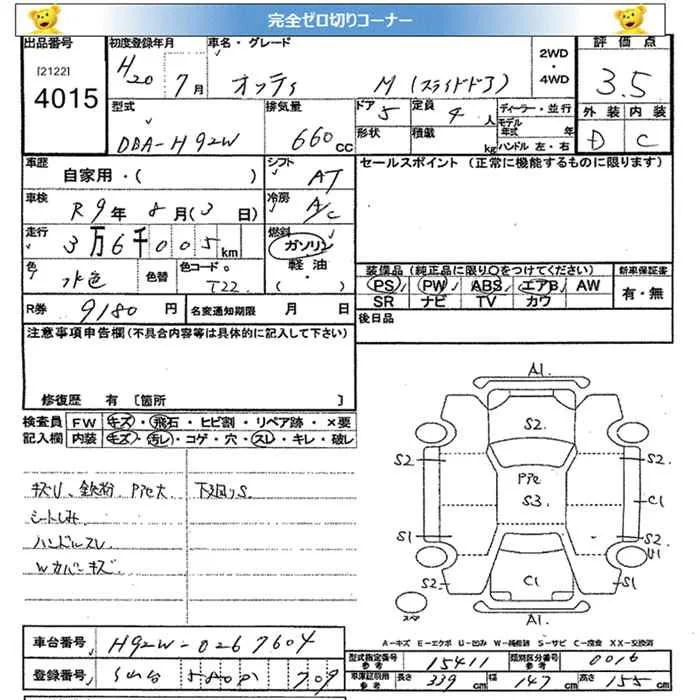 完全ゼロ切りコーナー
出品番号 [2122] 4015
初度登録年月 H20 7月
車名・グレード オッティ M (スライドドア)
2WD ・ 4WD
評価点 3.5
外装 D 内装 C
型式 DBA-H92W
排気量 660 CC
ドア 5 定員 4人
形状 積載 kg
ディーラー・並行
モデル年式 年
ハンドル 左・右
車歴 自家用・( )
シフト AT
セールスポイント (正常に機能するものに限ります)
車検 R9年 8月(3日)
冷房 A/C
走行 3万6千005km
燃料 ガソリン 軽・油 ・( )
色 水色 色替 色コードNo. T22
装備品 (純正品に限り○をつけてください) 新車保証書
PS PW ABS エアB AW 有・無
SR ナビ TV カワ
R券 9180円 名変通知期限 月 日
後日品
注意事項申告欄(不具合内容等は具体的に記入して下さい)
修復歴 有 [箇所 ]
検査員 FW キズ・飛石・ヒビ割・リペア跡・×要
記入欄 内装 キズ・汚レ・コゲ・穴・スレ・キレ・破レ
キズU、鉄粉、Pite大 下廻りS
シートしみ
ハンドルスレ
Wカバーキズ
A1
S2
S2 S2
Pite
S3
C1
S1 U1
C1
S2 S1
スペア
A1
A-キズ E-エクボ U-凹み W-補修跡 S-サビ C-腐食 XX-交換済
車台番号 H92W-0267604
型式指定番号 参考 15411 類別区分番号 参考 0016
登録番号 仙台 580 709
車庫証明用 参考 長さ 339cm 幅 147cm 高さ 155cm